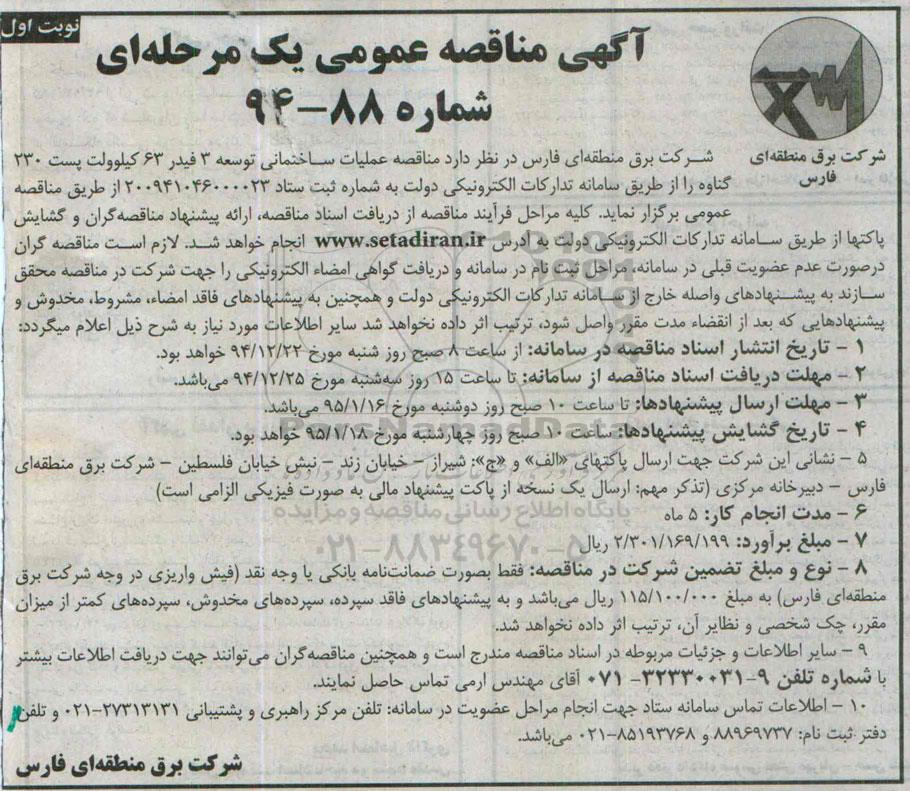 نوبت اول
آگهی مناقصه عمومی یک مرحله‌ای
شماره ۸۸-۹۴
شرکت برق منطقه‌ای
فارس
شرکت برق منطقه‌ای فارس در نظر دارد مناقصه عملیات ساختمانی توسعه ۳ فیدر ۶۳ کیلوولت پست ۲۳۰
گناوه را از طریق سامانه تدارکات الکترونیکی دولت به شماره ثبت ستاد ۲۰۰۹۴۱۰۴۶۰۰۰۰۲۳ از طریق مناقصه
عمومی برگزار نماید. کلیه مراحل فرآیند مناقصه از دریافت اسناد مناقصه، ارائه پیشنهاد مناقصه‌گران و گشایش
پاکتها از طریق سامانه تدارکات الکترونیکی دولت به آدرس www.setadiran.ir انجام خواهد شد. لازم است مناقصه گران
درصورت عدم عضویت قبلی در سامانه، مراحل ثبت نام در سامانه و دریافت گواهی امضاء الکترونیکی را جهت شرکت در مناقصه محقق
سازند به پیشنهادهای واصله خارج از سامانه تدارکات الکترونیکی دولت و همچنین به پیشنهادهای فاقد امضاء، مشروط، مخدوش و
پیشنهادهایی که بعد از انقضاء مدت مقرر واصل شود، ترتیب اثر داده نخواهد شد سایر اطلاعات مورد نیاز به شرح ذیل اعلام میگردد:
۱ - تاریخ انتشار اسناد مناقصه در سامانه: از ساعت ۸ صبح روز شنبه مورخ ۹۴/۱۲/۲۲ خواهد بود.
۲ - مهلت دریافت اسناد مناقصه از سامانه: تا ساعت ۱۵ روز سه‌شنبه مورخ ۹۴/۱۲/۲۵ می‌باشد.
۳ - مهلت ارسال پیشنهادها: تا ساعت ۱۰ صبح روز دوشنبه مورخ ۹۵/۱/۱۶ می‌باشد.
۴ - تاریخ گشایش پیشنهادها: ساعت ۱۰ صبح روز چهارشنبه مورخ ۹۵/۱/۱۸ خواهد بود.
۵ - نشانی این شرکت جهت ارسال پاکتهای «الف» و «ج»: شیراز - خیابان زند - نبش خیابان فلسطین - شرکت برق منطقه‌ای
فارس - دبیرخانه مرکزی (تذکر مهم: ارسال یک نسخه از پاکت پیشنهاد مالی به صورت فیزیکی الزامی است)
۶ - مدت انجام کار: ۵ ماه
۷ - مبلغ برآورد: ۲/۳۰۱/۱۶۹/۱۹۹ ریال
۸ - نوع و مبلغ تضمین شرکت در مناقصه: فقط بصورت ضمانت‌نامه بانکی یا وجه نقد (فیش واریزی در وجه شرکت برق
منطقه‌ای فارس) به مبلغ ۱۱۵/۱۰۰/۰۰۰ ریال می‌باشد و به پیشنهادهای فاقد سپرده، سپرده‌های مخدوش، سپرده‌های کمتر از میزان
مقرر، چک شخصی و نظایر آن، ترتیب اثر داده نخواهد شد.
۹ - سایر اطلاعات و جزئیات مربوطه در اسناد مناقصه مندرج است و همچنین مناقصه‌گران می‌توانند جهت دریافت اطلاعات بیشتر
با شماره تلفن ۹-۳۲۳۳۰۰۳۱- ۰۷۱ آقای مهندس ارمی تماس حاصل نمایند.
۱۰ - اطلاعات تماس سامانه ستاد جهت انجام مراحل عضویت در سامانه: تلفن مرکز راهبری و پشتیبانی ۲۷۳۱۳۱۳۱-۰۲۱ و تلفن
دفتر ثبت نام: ۸۸۹۶۹۷۳۷ و ۸۵۱۹۳۷۶۸-۰۲۱ می‌باشد.
شرکت برق منطقه‌ای فارس
ParsNamadData
پایگاه اطلاع رسانی مناقصه و مزایده
۰۲۱-۸۸۳۴۹۶۷۰-۵